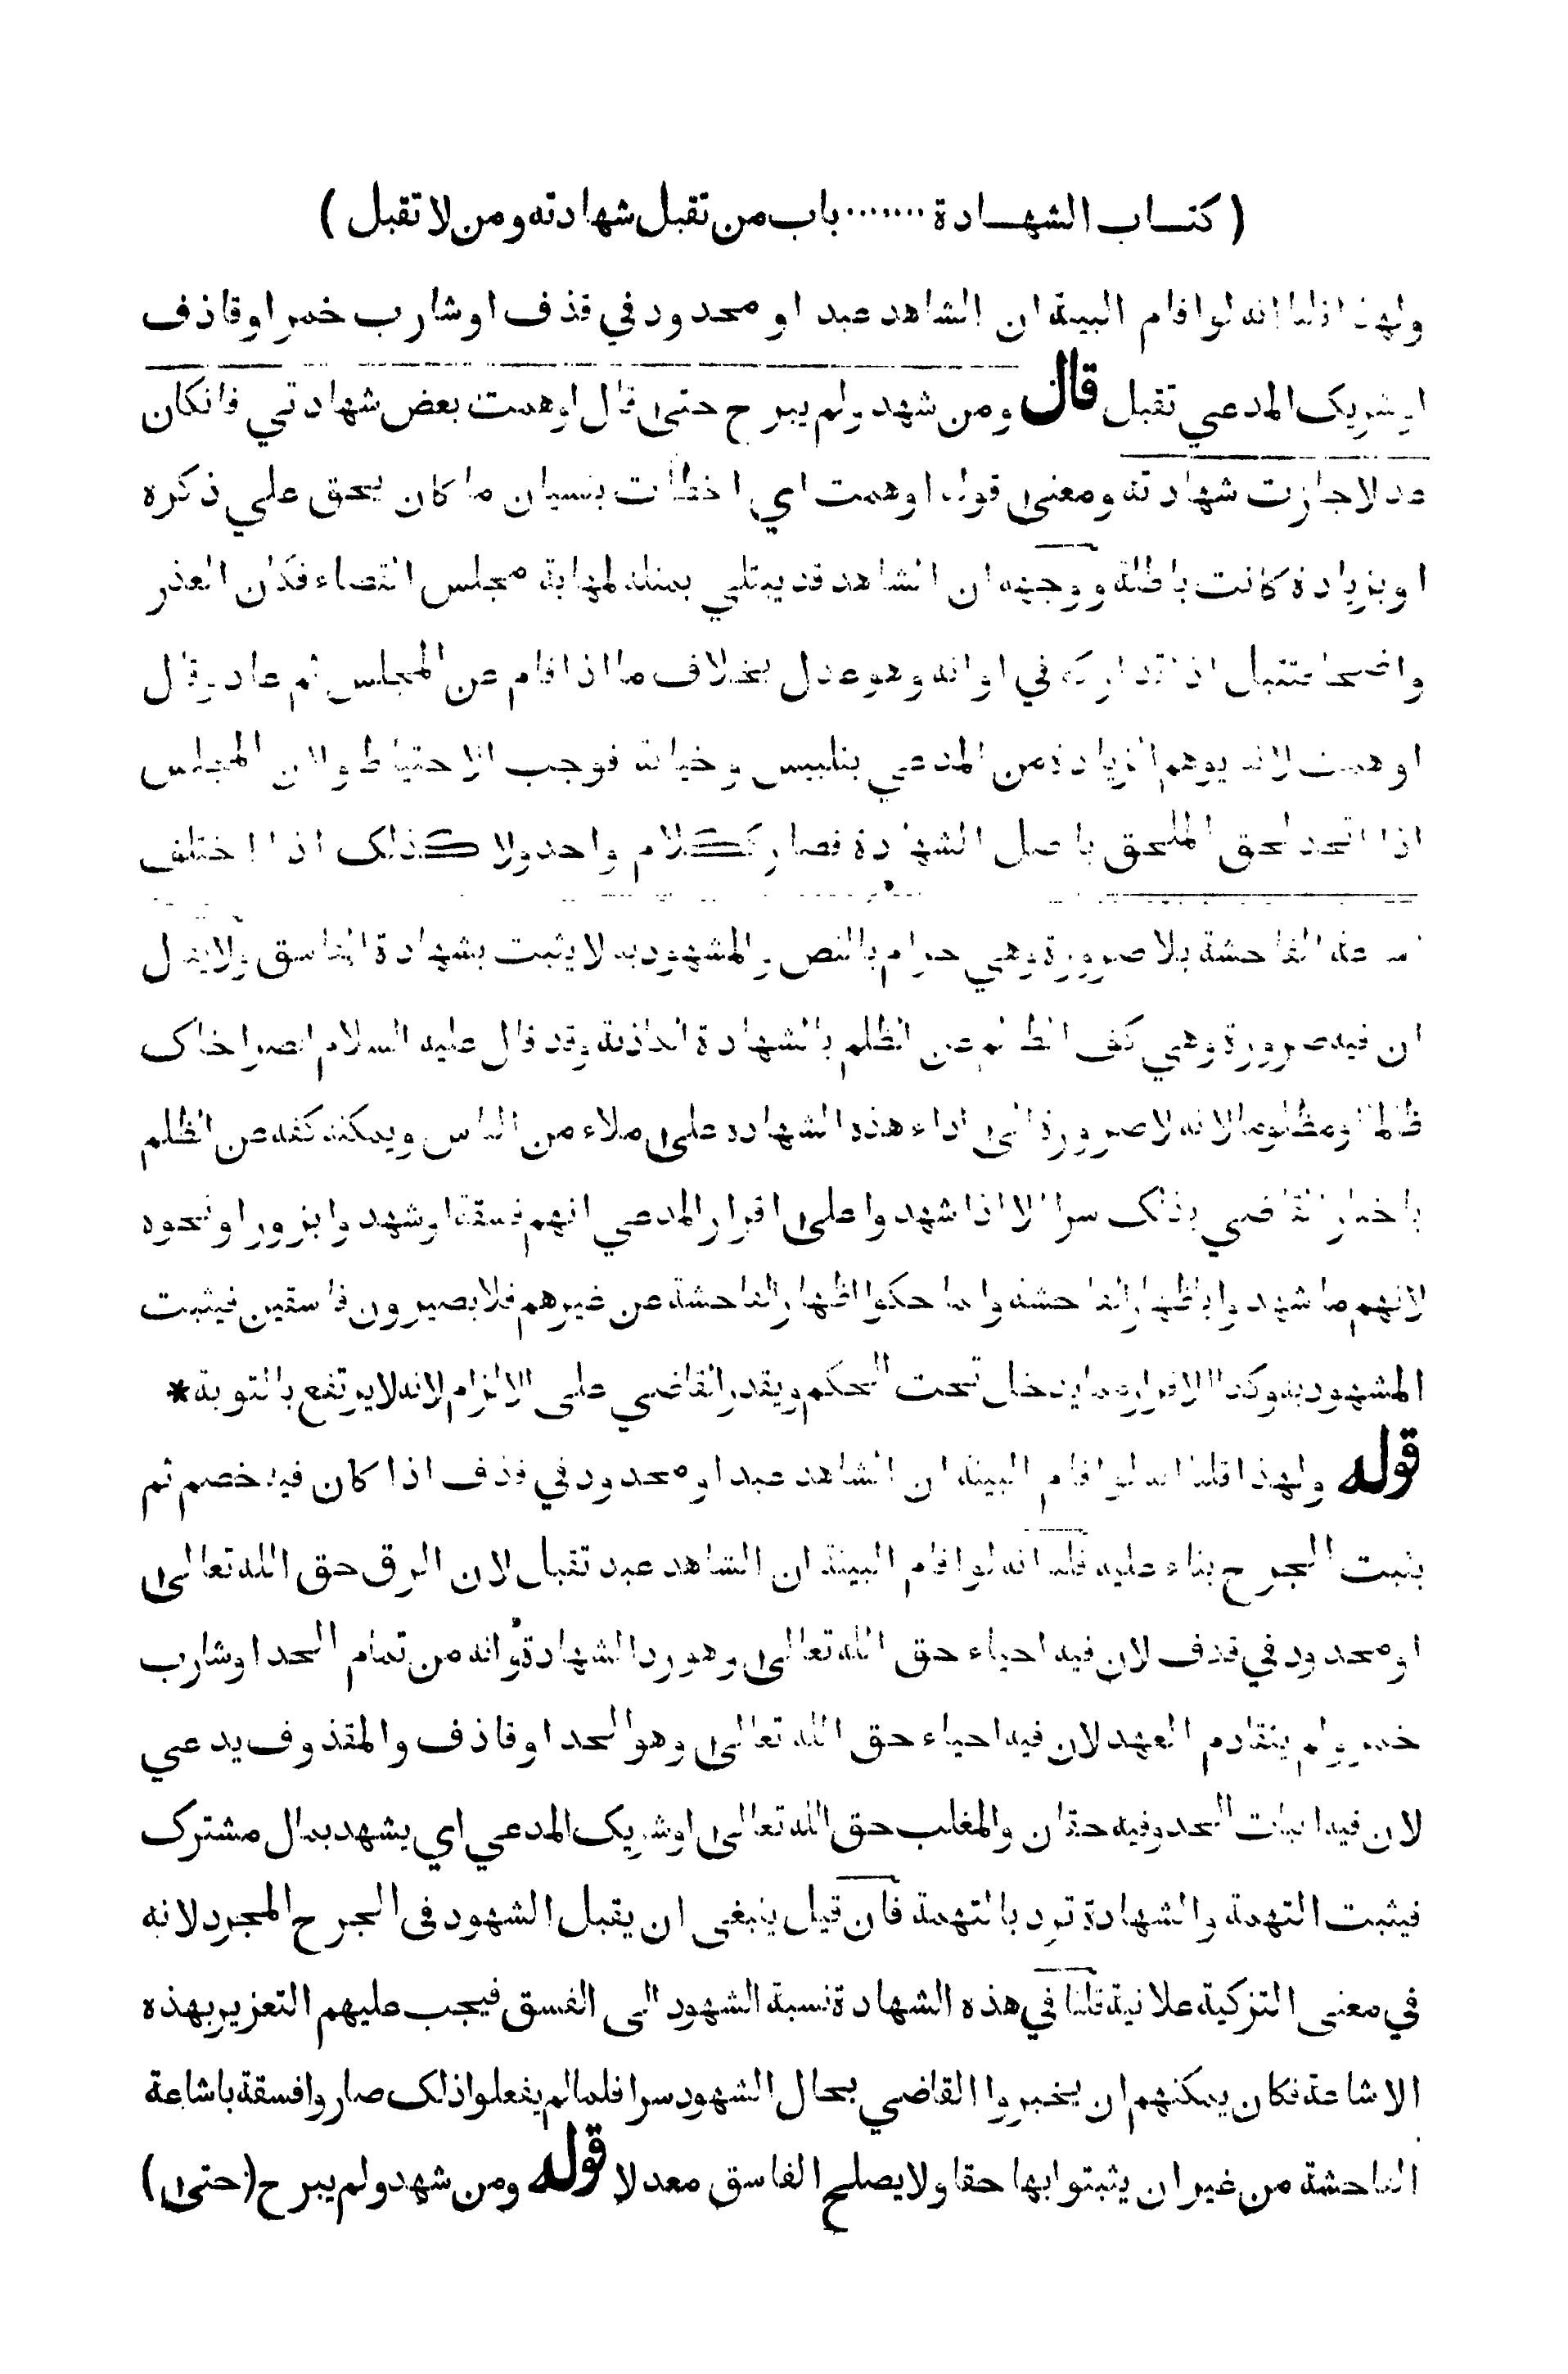 ( كتاب الشهادة ....... باب من تقبل شهادته ومن لا تقبل )
ولهذا قلنا انه لو اقام البينة ان الشاهد عبد او محدود في قذف او شارب خمر او قاذف
او شريك المدعي تقبل قال ومن شهد ولم يبرح حتى قال اوهمت بعض شهادتي فانكان
عدلا جازت شهادته ومعنى قوله اوهمت اي اخطأت بنسيان ما كان يحق علي ذكره
او بزيادة كانت باطلة ووجهه ان الشاهد قد يبتلي بمثله لمهابة مجلس القضاء فكان العذر
واضحا فتقبل اذا تداركه في اوانه وهو عدل بخلاف ما اذا قام عن المجلس ثم عاد وقال
اوهمت لانه يوهم الزيادة من المدعي بتلبيس وخيانة فوجب الاحتياط ولان المجلس
اذا اتحد لحق الملحق باصل الشهادة فصار ككلام واحد ولا كذلك اذا اختلف
اشاعة الفاحشة بلا ضرورة وهي حرام بالنص والمشهود به لا يثبت بشهادة الفاسق ولا يقال
ان فيه ضرورة وهي كف الظالم عن الظلم بالشهادة الكاذبة وقد قال عليه السلام انصر اخاك
ظالما او مظلوما لانه لا ضرورة الى اداء هذه الشهادة على ملاء من الناس ويمكنه كفه عن الظلم
باخبار القاضي بذلك سرا الا اذا شهدوا على اقرار المدعي انهم فسقة او شهدوا بزور او نحوه
لانهم ما شهدوا باظهار الفاحشة وانما حكوا اظهار الفاحشة عن غيرهم فلا يصيرون فاسقين فيثبت
المشهود به وكذا الاقرار مما يدخل تحت الحكم ويقدر القاضي على الالزام لانه لا يرتفع بالتوبة *
قوله ولهذا قلنا انه لو اقام البينة ان الشاهد عبد او محدود في قذف اذا كان فيه خصم ثم
يثبت الجرح بناء عليه قلنا انه لو اقام البينة ان الشاهد عبد تقبل لان الرق حق الله تعالى
او محدود في قذف لان فيه احياء حق الله تعالى وهو رد الشهادة وانه من تمام الحد او شارب
خمر ولم يتقادم العهد لان فيه احياء حق الله تعالى وهو الحد او قاذف والمقذوف يدعي
لان فيه اثبات الحد وفيه حقان والمغلب حق الله تعالى او شريك المدعي اي يشهد بمال مشترك
فيثبت التهمة والشهادة ترد بالتهمة فان قيل ينبغى ان يقبل الشهود فى الجرح المجرد لانه
في معنى التزكية علانية قلنا في هذه الشهادة نسبة الشهود الى الفسق فيجب عليهم التعزير بهذه
الاشاعة فكان يمكنهم ان يخبروا القاضي بحال الشهود سرا فلما لم يفعلوا ذلك صاروا فسقة باشاعة
الفاحشة من غير ان يثبتوا بها حقا ولا يصلح الفاسق معدلا قوله ومن شهد ولم يبرح (حتى)